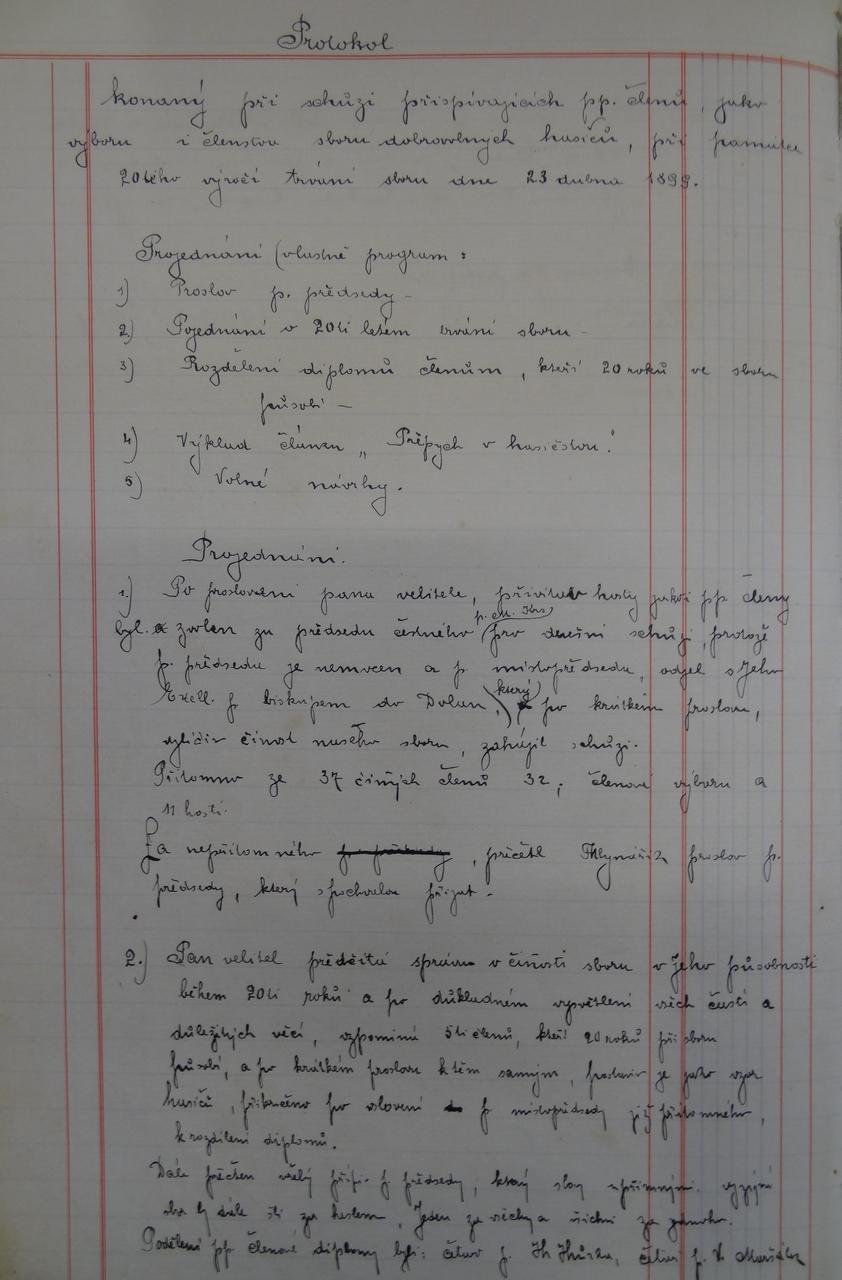 Protokol
konaný při schůzi přispívajících pp. členů, jako
výboru i členstva sboru dobrovolných hasičů, při památce
20tého výročí trvání sboru dne 23 dubna 1899.
Projednání (vlastně program:
1) Proslov p. předsedy –
2) Pojednání o 20ti letém trvání sboru –
3) Rozdělení diplomů členům, kteří 20 roků ve sboru
působí –
4) Výklad článku „Přepych v hasičstvu."
5) Volné návrhy.
Projednání.
1.) Po proslovení pana velitele, přivítav hosty jakož pp. členy
byl zvolen za předsedu čestného p. M. (pro dnešní schůzi, protože
p. předseda je nemocen a p. místopředseda, odjel s Jeho
Excell. p. biskupem do Dolan,) který po krátkém proslovu,
vylíčiv činost našeho sboru, zahájil schůzi.
Přítomno ze 37 činých členů 32, členové výboru a
11 hostí.
Za nepřítomného , přečetl proslov p.
předsedy, který s pochvalou přijat –
2.) Pan velitel předčítá správu o činosti sboru v jeho působnosti
během 20ti roků a po důkladném vysvětlení všech částí a
důležitých věcí, vzpomíná 5ti členů, kteří 20 roků při sboru
působí, a po krátkém proslovu k těm samým, postaviv je jako vzor
hasičů, přikročeno po oslovení p. místopředsedy již přítomného,
k rozdílení diplomů.
Dále přečten vřelý přípis p. předsedy, který slovy upřímnými vyzývá
aby dále šli za heslem, Jeden za všechny a všichni za jednoho.
Podělení pp. členové diplomy byli: četař p. četař p. V.